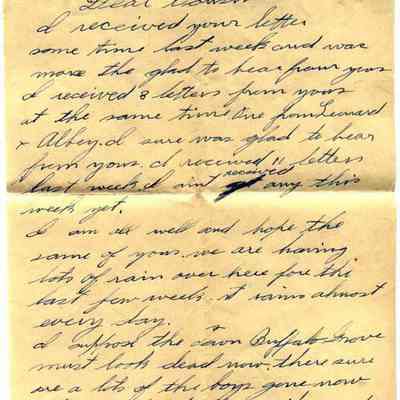 Dear Cousin
I received your letter
some time last week and was
more the glad to hear from you
I received 8 letters from yous
at the same time One from Leonard
+ Abbey. I sure was glad to hear
from yous. I received 11 letters
last week I aint received any this
week yet.
I am all well and hope the
same of yous. we are having
lots of rain over here fore the
last few week. it rains almost
every day.
I suppose the town Buffalo Grove
must look dead now. there sure
are a lots of the boys gone now